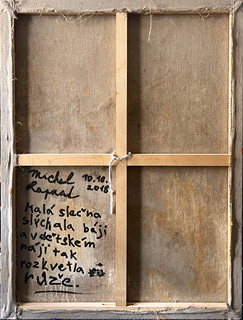 Michal 10.10.
2018
Malá slečna
slýchala báji
a v dětském
háji tak
rozkvetla
růže.